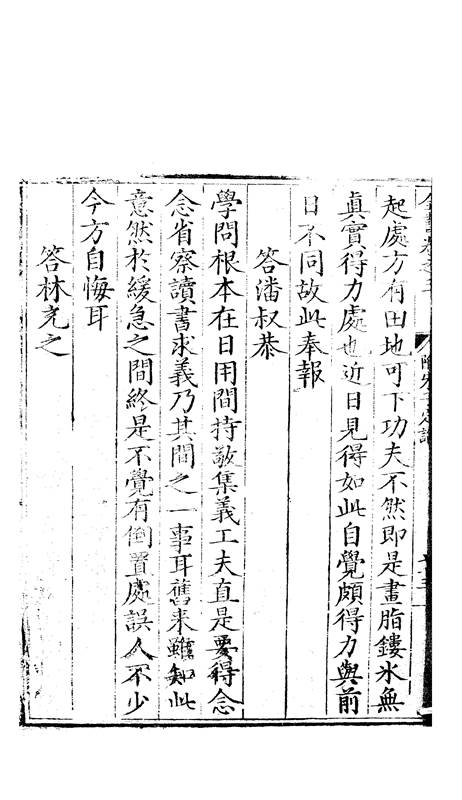 起處方有田地可下功夫不然即是畫脂鏤氷無
眞實得力處也近日見得如此自覺頗得力與前
日不同故此奉報
答潘叔恭
學問根本在日用間持敬集義工夫直是要得念
念省察讀書求義乃其間之一事耳舊來雖知此
意然於緩急之間終是不覺有倒置處誤人不少
今方自悔耳
答林充之